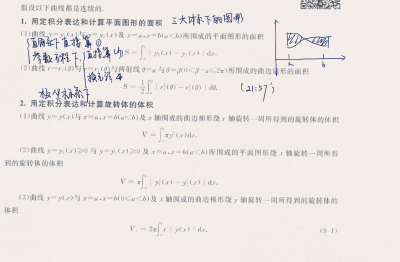 假设以下曲线都是连续的.
1. 用定积分表达和计算平面图形的面积 三大对标下的图形
(1)曲线 y=y₁(x)与y=y₂(x)及 x=a,x=b(a<b)所围成的平面图形的面积
直角坐标下直接算(1)
S=∫ₐᵇ|y₁(x)-y₂(x)|dx.
参数方程下,直接算(4)
(2)曲线 r=r₁(θ)与r=r₂(θ)与两射线θ=α与θ=β(0<β-α≤2π)所围成的曲边扇形的面积
换元法
S=½∫|r₁²(θ)-r₂²(θ)|dθ.
极坐标下
a b
(21:57)
2. 用定积分表达和计算旋转体的体积
(1)曲线 y=y(x)与 x=a,x=b(a<b)及 x 轴围成的曲边梯形绕 x 轴旋转一周所得到的旋转体的体积
V=π∫ₐᵇy²(x)dx.
(2)曲线 y=y₁(x)≥0 与 y=y₂(x)≥0 及 x=a,x=b(a<b)所围成的平面图形绕 x 轴旋转一周所得
到的旋转体的体积
V=π∫ₐᵇ|y₁²(x)-y₂²(x)|dx.
(3)曲线 y=y(x)与 x=a,x=b(0≤a<b)及 x 轴围成的曲边梯形绕 y 轴旋转一周所得到的旋转体的
体积
V=2π∫ₐᵇx|y(x)|dx. (9-1)